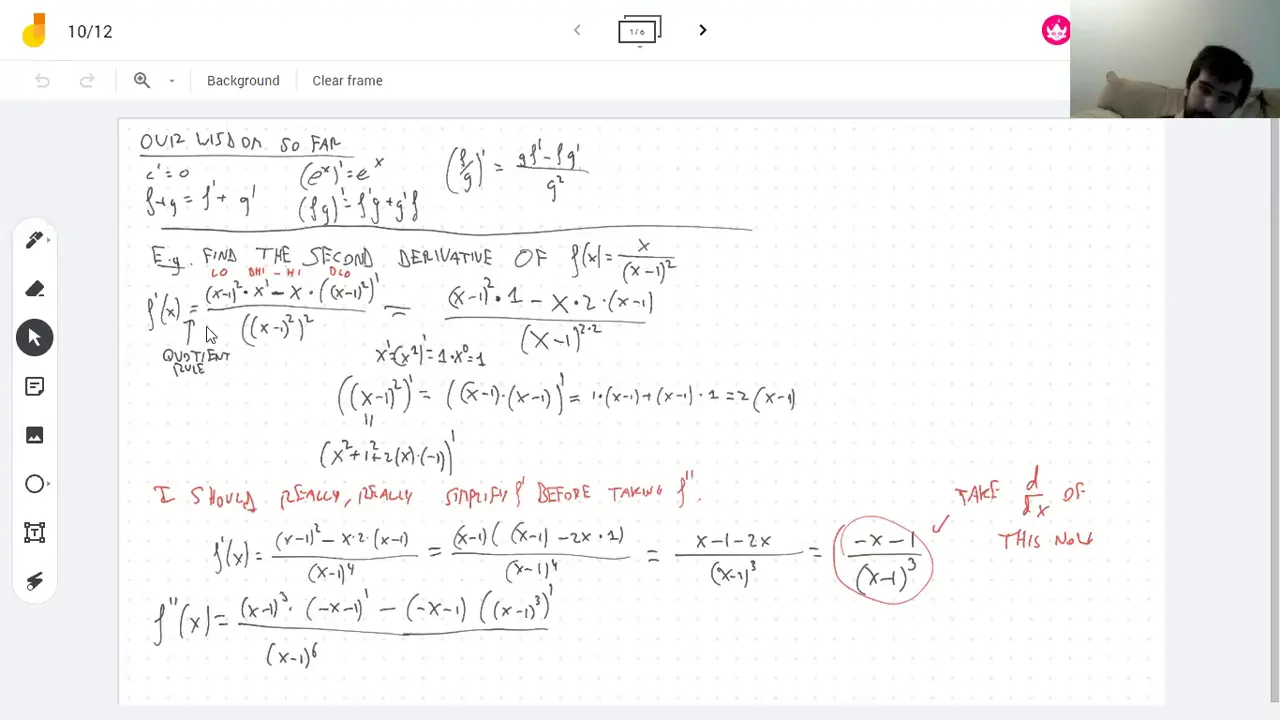 10/12
1/6
Background
Clear frame
OUR WISDOM SO FAR
c' = 0   (e^x)' = e^x   (f/g)' = (gf' - fg')/g^2
f+g = f' + g'   (fg)' = f'g + g'f
E.g. FIND THE SECOND DERIVATIVE OF f(x) = x/(x-1)^2
LO DHI - HI DLO
f'(x) = ((x-1)^2 · x' - x · ((x-1)^2)')/((x-1)^2)^2 = ((x-1)^2 · 1 - x · 2 · (x-1))/(x-1)^{2·2}
QUOTIENT RULE
x' = (x^1)' = 1 · x^0 = 1
((x-1)^2)' = ((x-1) · (x-1))' = 1 · (x-1) + (x-1) · 1 = 2(x-1)
(x^2 + 1^2 + 2(x) · (-1))'
I SHOULD REALLY, REALLY SIMPLIFY f' BEFORE TAKING f''.
TAKE d/dx OF THIS NOW
f'(x) = ((x-1)^2 - x · 2 · (x-1))/(x-1)^4 = (x-1)((x-1) - 2x · 1)/(x-1)^4 = (x-1-2x)/(x-1)^3 = (-x-1)/(x-1)^3
f''(x) = ((x-1)^3 · (-x-1)' - (-x-1)((x-1)^3)')/(x-1)^6